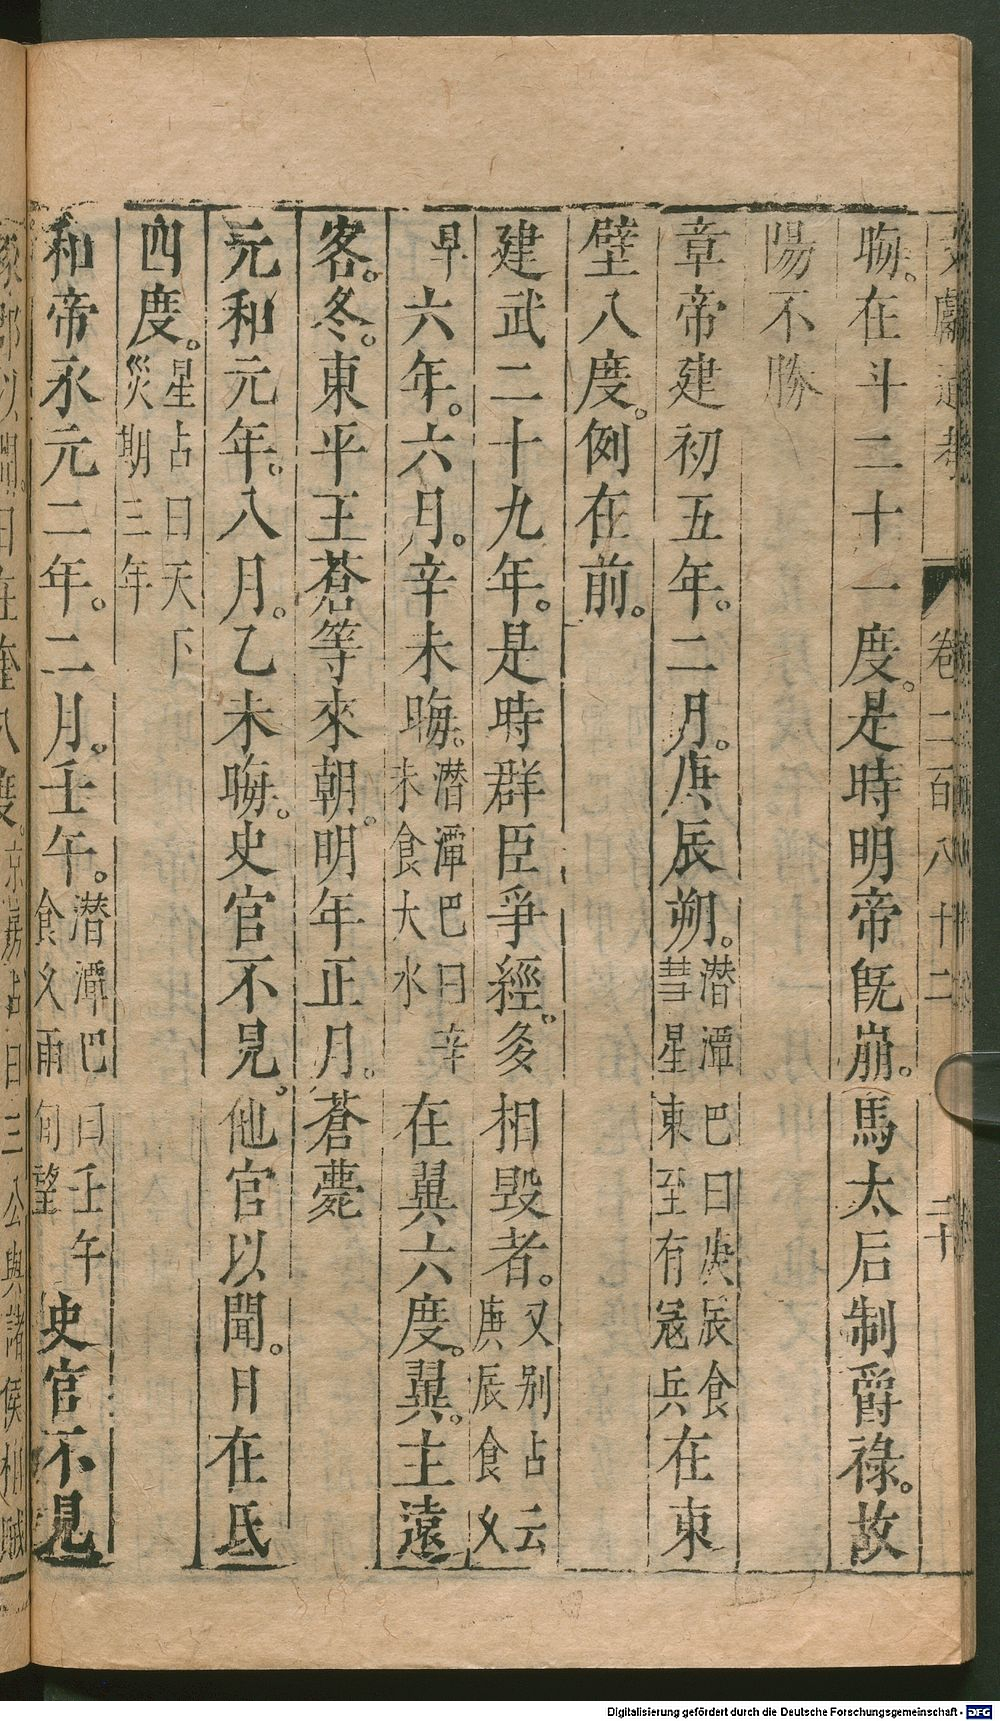 文獻通考 卷二百八十二 二十
晦。在斗二十一度。是時明帝旣崩。馬太后制爵祿。故
陽不勝
章帝建初五年。二月。庚辰朔。潜潭巴曰庚辰食彗星東至有冦兵在東
壁八度。例在前。
建武二十九年。是時群臣爭經。多相毀者。又别占云庚辰食乂
旱六年。六月。辛未晦。潜潭巴曰辛未食大水在翼六度。翼。主遠
客。冬。東平王蒼等來朝。明年正月。蒼薨
元和元年。八月。乙未晦。史官不見。他官以聞。日在氐
四度。星占曰天下災期三年
和帝永元二年。二月。壬午。潜潭巴曰壬午食久雨旬望史官不見
涿郡以聞。日在奎八度。京房占曰三公與諸侯相賊
Digitalisierung gefördert durch die Deutsche Forschungsgemeinschaft - DFG